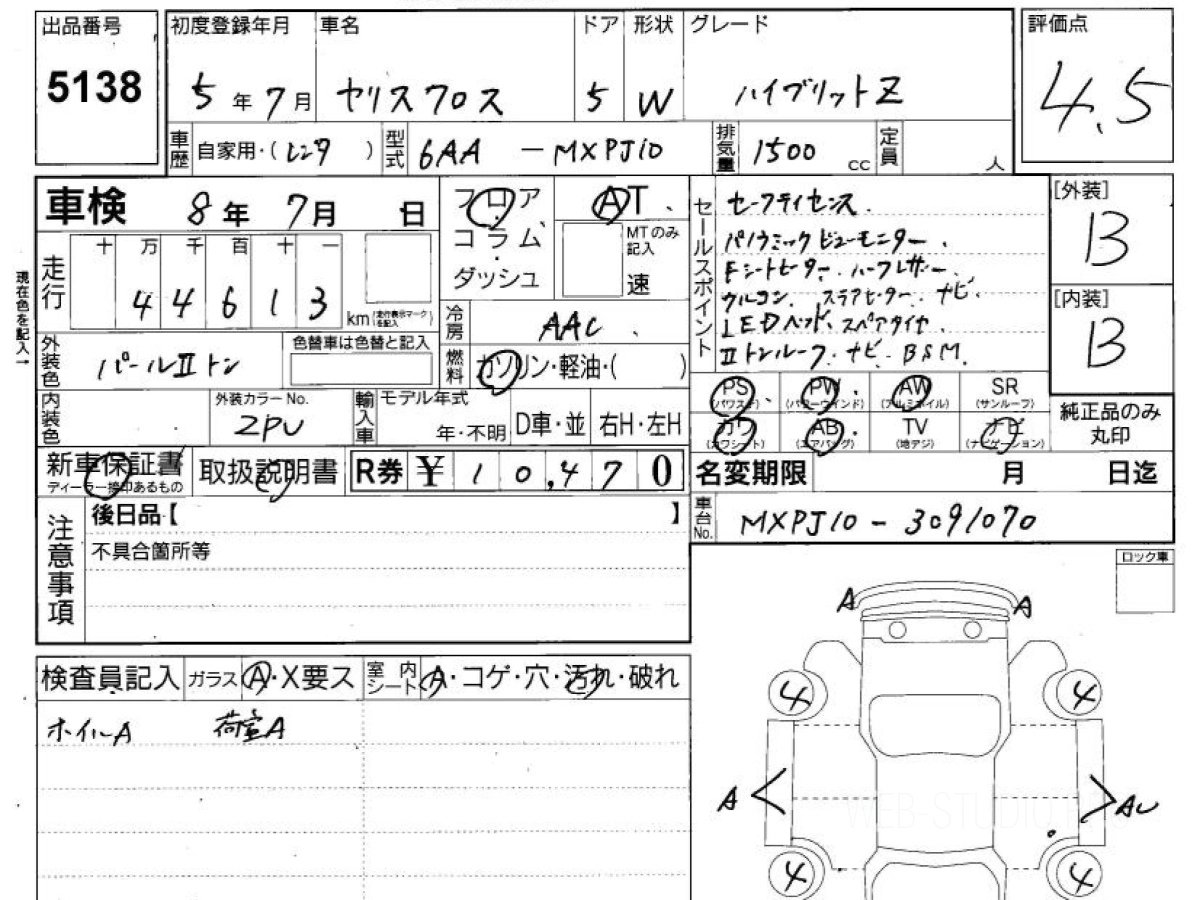 出品番号
5138
初度登録年月 車名 ドア 形状 グレード
5年7月 ヤリスクロス 5 W ハイブリットZ
評価点
4.5
車歴 自家用・(レンタ) 型式 6AA-MXPJ10 排気量 1500 cc 定員 人
車検 8年7月 日
フロア
コラム
ダッシュ
AT
MTのみ記入
速
現在色を記入→
走行 十 万 千 百 十 一
44613 km (走行表示マークを記入)
冷房 AAC
外装色 パールIIトン
色替車は色替と記入
燃料 ガソリン・軽油・( )
内装色
外装カラーNo.
2PU
輸入車 モデル年式
年・不明 D車・並 右H・左H
新車保証書
ディーラー捺印あるもの
取扱説明書 R券 ¥10,470
セールスポイント
セーフティセンス.
パノラミックビューモニター.
Fシートヒーター.ハーフレザー.
クルコン. ステアヒーター. ナビ.
LEDヘッド.スペアタイヤ.
IIトンルーフ.ナビ.BSM.
[外装]
B
[内装]
B
PS PW AW SR
(パワステ) (パワーウインド) (アルミホイル) (サンルーフ)
カワ AB TV ナビ
(カワシート) (エアバッグ) (地デジ) (ナビゲーション)
純正品のみ
丸印
名変期限 月 日迄
車台No. MXPJ10-3091070
注意事項
後日品【 】
不具合箇所等
ロック車
検査員記入 ガラス A・X要ス 室内シート A・コゲ・穴・汚れ・破れ
ホイルA 荷室A
A A
4 4
A AU
4 4
WEB-STUDIO